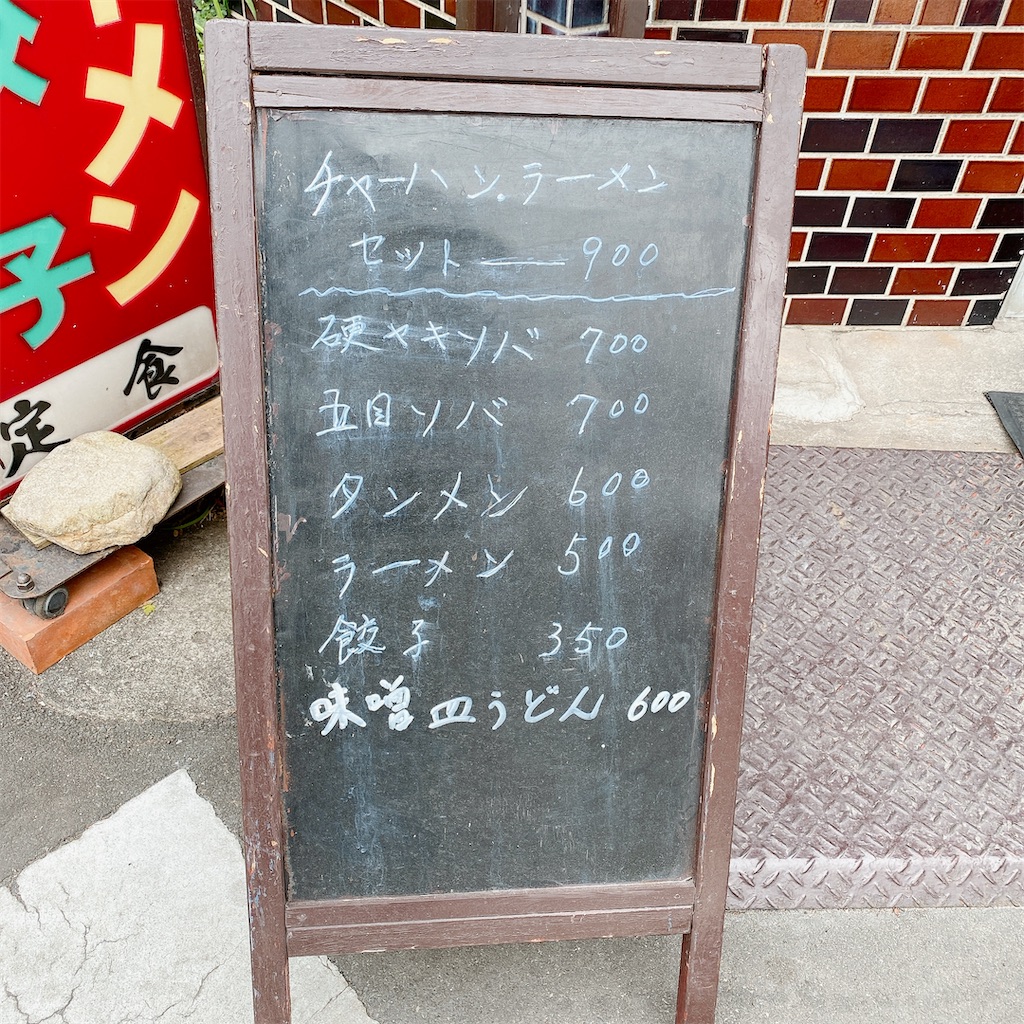 チャーハン.ラーメン
セット — 900
硬ヤキソバ 700
五目ソバ 700
タンメン 600
ラーメン 500
餃子 350
味噌皿うどん 600
メン
子
定食